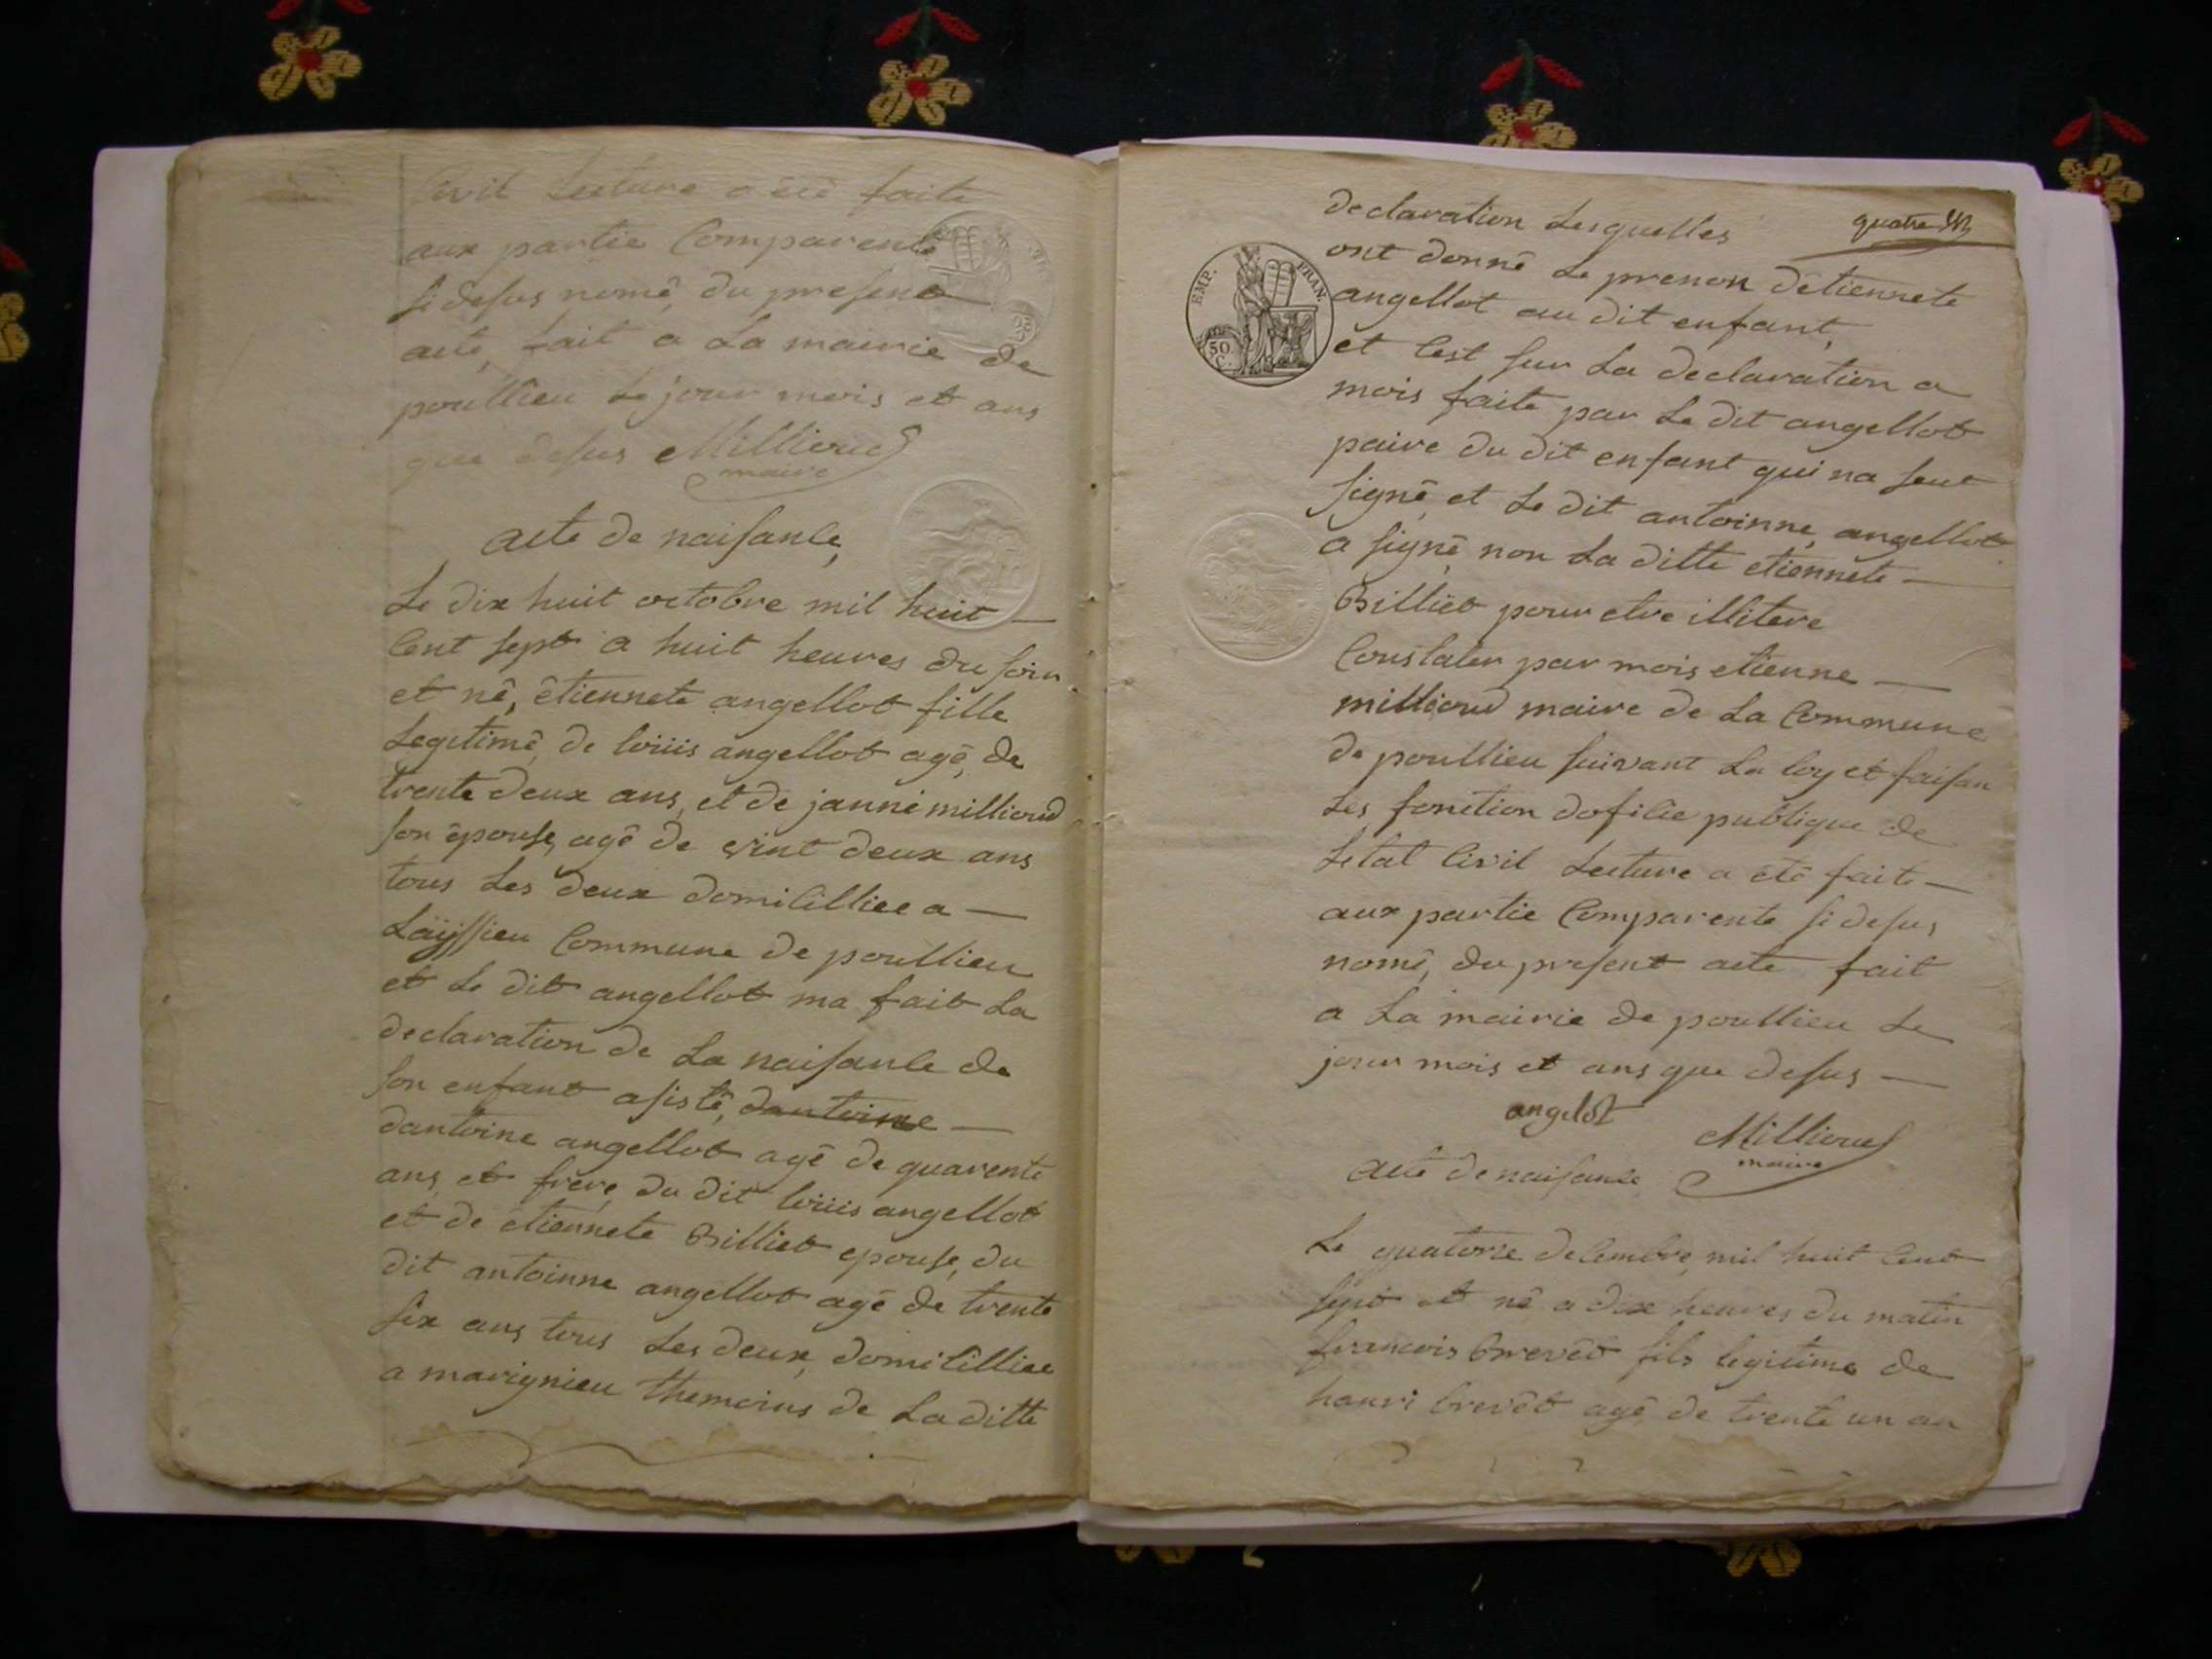 Civil Lecture a été faite
aux partie Comparente
si desus nomé, du present
acte, fait a La mairie de
poullieu Le jour mois et ans
que desus Milliorud
maire
acte de naisance,
Le dix huit octobre mil huit —
Cent sept a huit heures du soir
et né, êtiennete angellot fille
Legitimê, de loüis angellot agé, de
trente deux ans, et de janne milliorud
son êpouse, agé de vint deux ans
tous Les deux domicilliee a —
Laÿssieu Commune de poullieu
et Le dit angellot ma fait La
declaration de La naisance de
son enfant asisté, dantoinne —
dantoine angellot agé de quarente
ans, et frère, du dit loüis angellot
et de etiennete Billiet epouse, du
dit antoinne angellot agé de trente
six ans tous Les deux domicilliee
a marignieu themoins de La ditte
declaration Lesquelles
quatre
ont donné Le prenon dêtiennete
angellot au dit enfant,
EMP. FRAN.
50 C.
et Cest sur La declaration a
mois faite par Le dit angellot
paire du dit enfant qui na seut
signé, et Le dit antoinne, angellot
a signé, non La ditte etiennete —
Billiet pour etre illitere
Constater par mois etienne —
milliorud maire de La Commune
de poullieu suivant La loy et faisan
Les fonction dofilie publique de
Letat Civil Lecture a été faite —
aux partie Comparente si desus,
nomé, du present acte fait
a La mairie de poullieu Le
jour mois et ans que desus —
angelot
Milliorud
maire
acte de naisance
Le quatorze decembre, mil huit Cent
sept et né a dix heures du matin
francois brevêt fils legitime de
hanri brevêt agé, de trente un an